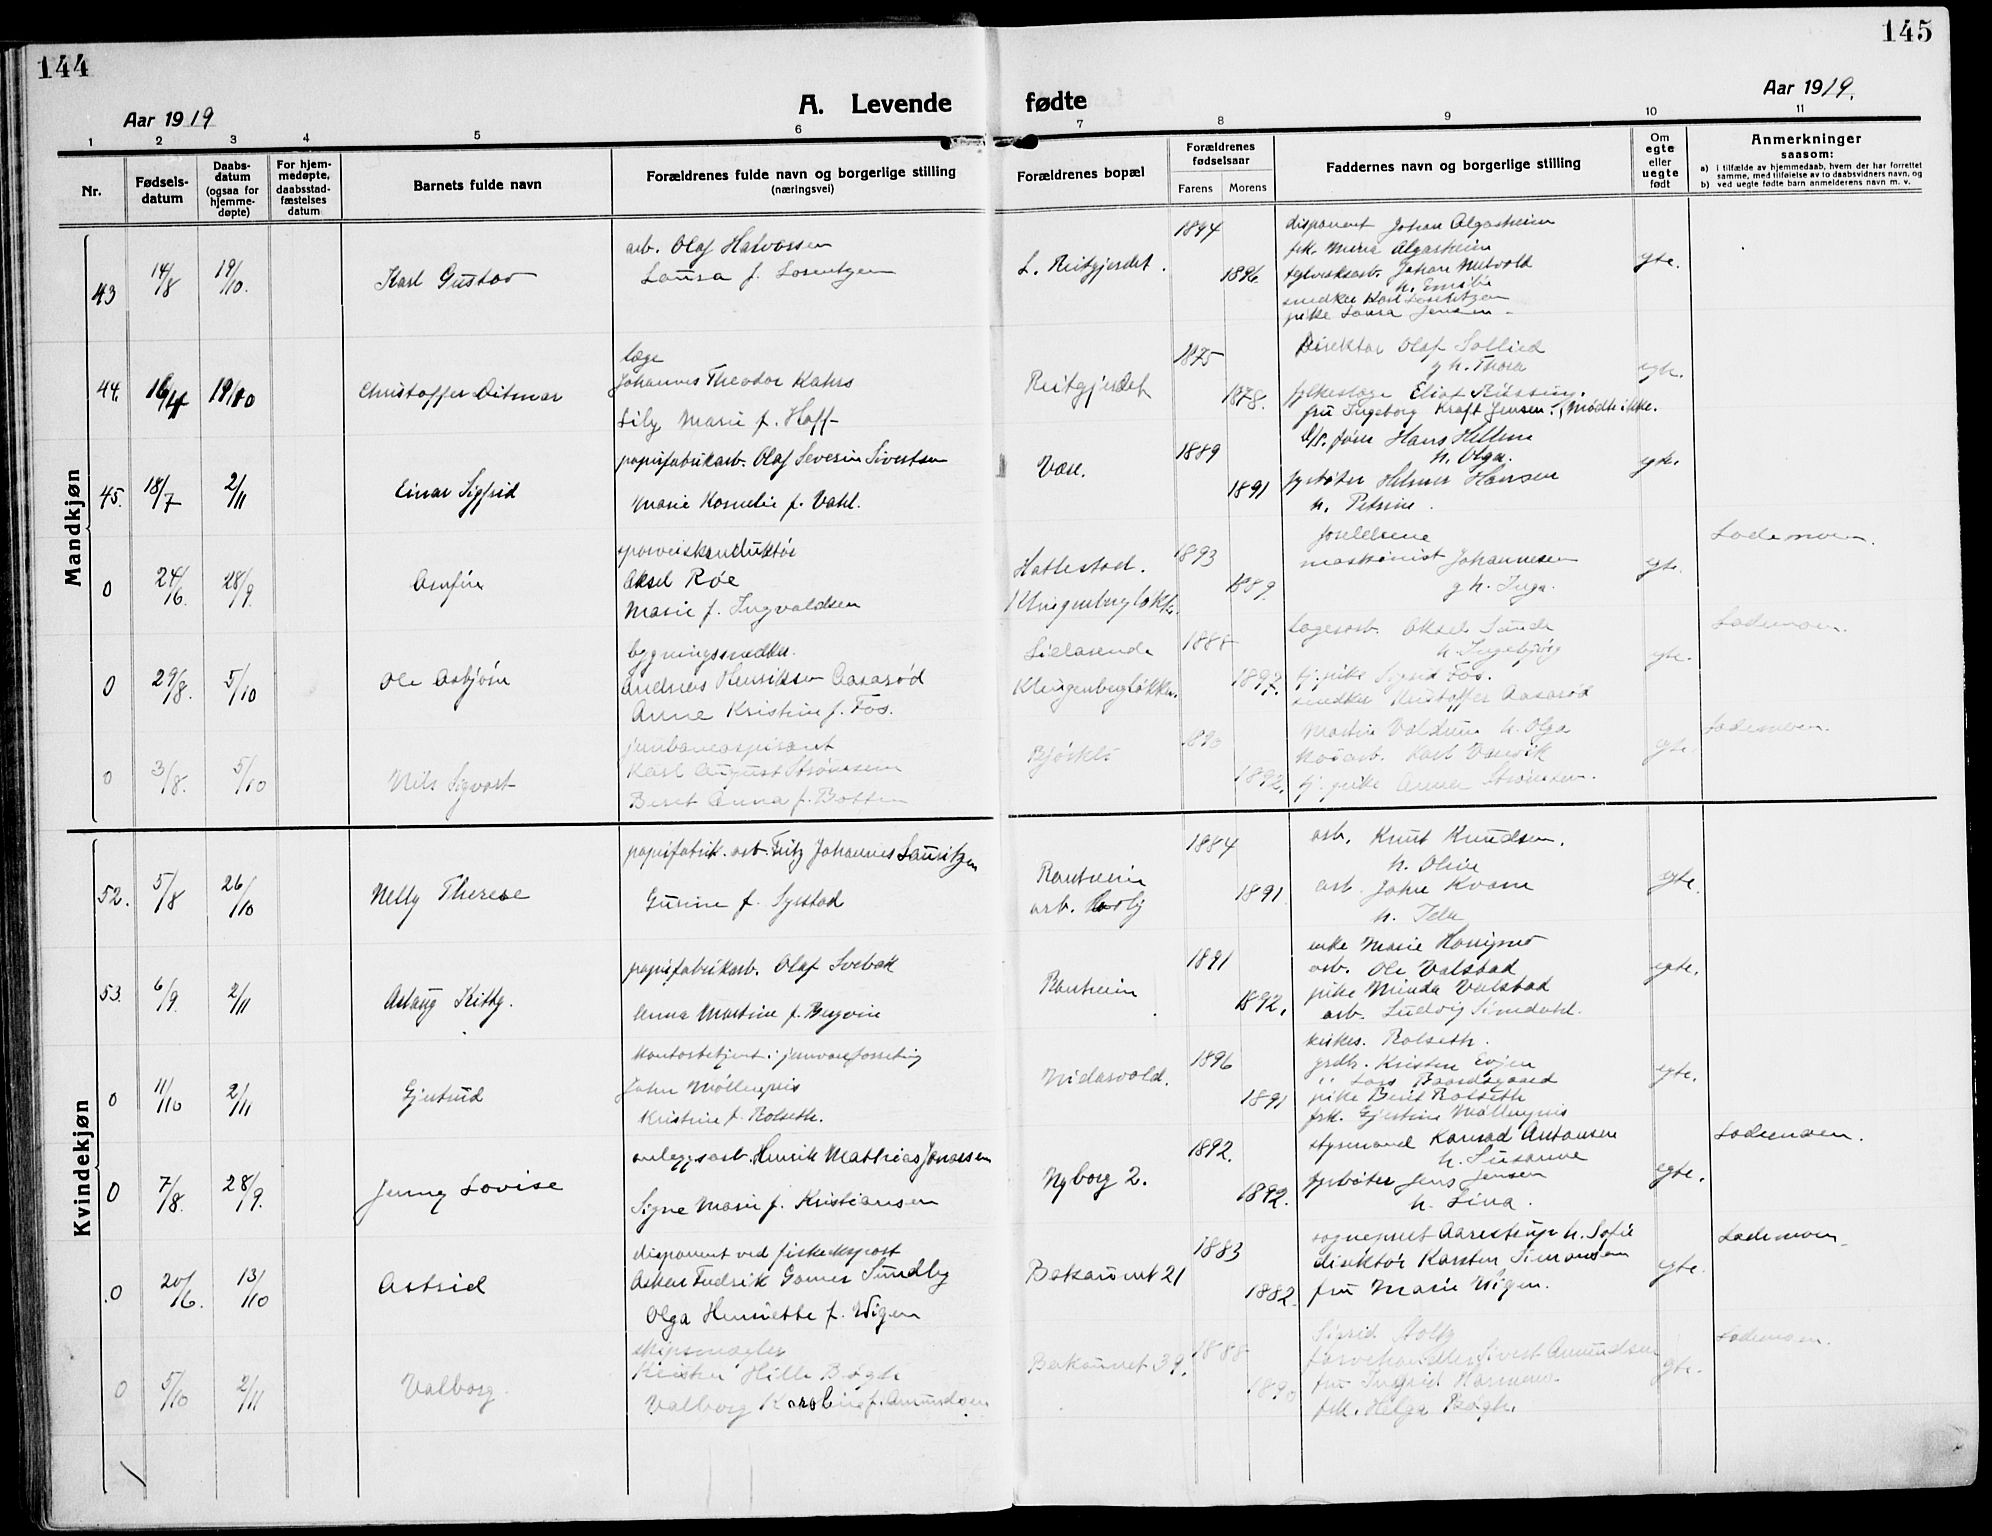 144
145
Aar 1919
A. Levende fødte
Aar 1919.
1 2 3 4 5 6 7 8 9 10 11
Nr.
Fødsels-
datum
Daabs-
datum
(ogsaa for
hjemme-
døpte)
For hjem-
medøpte,
daabsstad-
fæstelses
datum
Barnets fulde navn
Forældrenes fulde navn og borgerlige stilling
(næringsvei)
Forældrenes bopæl
Forældrenes
fødselsaar
Farens Morens
Faddernes navn og borgerlige stilling
Om
egte
eller
uegte
født
Anmerkninger
saasom:
a) i tilfælde av hjemmedaab, hvem der har forrettet
samme, med tilføielse av to daabsvidners navn, og
b) ved uegte fødte barn anmelderens navn m. v.
Mandkjøn
43 14/8 19/10. Karl Gustav
arb. Olaf Halvorsen
Laura f. Lorentzen
L. Reitgjerdet.
1894
1896.
disponent Johan Algarheim
frk. Maria Algarheim
Johan Melvold
h. Emilie
snedker Karl Lorentzen
pike Laura Jensen
egte.
44. 16/4 19/10 Christoffer Ditmar
læge
Johannes Theodor Kahrs
Lily Marie f. Hoff
Reitgjerdet
1875
1878.
Direktør Olaf Sollied
g h. Thora
fylkeslæge Eliat
fru Ingeborg Kraft Jensen. (mødte ikke.
egte.
45. 18/7 2/11 Einar Sigfrid
papirfabrikarb. Olaf Severin Sivertsen
Marie Kornelie f. Vahl.
1889
1891
Hans Hellem
h. Olga.
fyrbøter Helmer Hansen
h. Petrine.
egte.
0 24/6. 28/9. Arnfin
sporveiskonduktør
Aksel Røe
Marie f. Ingvaldsen
Hallestad.
Klingenbergløkk.
1893
1889.
forældrene
maskinist Johannesen
g h. Inga.
egte.
Lademoen.
0 29/8. 5/10 Ole Asbjørn
bygningssnedker.
Andreas Henriksen Aasarød
Anne Kristine f. Fos.
Klingenbergløkken.
1888
lagerarb. Aksel Sunde
h. Ingebjørg
tj. pike Sigrid Fos.
snedker Kristoffer Aasarød
egte.
Lademoen.
0 3/8. 5/10 Nils Sigvart
jernbaneaspirant
Karl August Strømsem
Beret Anna f. Botten
1892.
h. Olga
Karl
tj. pike Anna Strømsem.
egte.
Lademoen.
Kvindekjøn
52. 5/8 26/10 Nelly Therese
papirfabrik. arb. Fritz Johannes Lauritzen
Gurine f. Systad
Ranheim
arb. bolig
1884
1891
arb. Knut Knudsen.
h. Oline
arb. John Kvam
h.
egte.
53. 6/9. 2/11 Aslaug Kitty.
papirfabrikarb. Olaf Svebak
Anna Martine f. Bergvin
Ranheim
1891
1892.
enke Marie
arb. Ole Valstad
pike Minda Valstad
arb. Ludvig Simdahl.
egte.
0 11/10 2/11 Gjertrud
kontorbetjent i
John Møllegnis
Kristine f. Rolseth.
Nidarvold.
1896
1891
kirkes. Rolseth.
grdb. Kristen Evjen
" Lars Baardsgaard
pike Berit Rolseth
frk. Gjertine Møllegnis
egte.
0 7/8. 28/9. Jenny Lovise
anleggsarb. Henrik Mathias Johansen
Signe Marie f. Kristiansen
Nyborg 2.
1892.
1892.
styrmand Konrad Antonsen
h. Susanne
fyrbøter Jens Jensen
h. Lina.
egte.
Lademoen.
0 20/6. 13/10 Astrid
disponent ved fiskeksport
Asker Fredrik Gomer Sundby
Olga Henriette f. Wigen
Bakaunet 21
1883
1882.
sogneprest Aarestrup h. Sofie
direktør Karsten Simonsen
fru Marie Wigen.
egte.
Lademoen.
0 5/10 2/11 Valborg.
skipsmægler
Kristen Hille Bøgh
Valborg Karoline f. Amundsen
Bakaunet 39.
1888
1890
Sigrid Holtz
farvehandler Sivert Amundsen
fru Ingrid
frk. Helga Bøgh.
egte.
Lademoen.